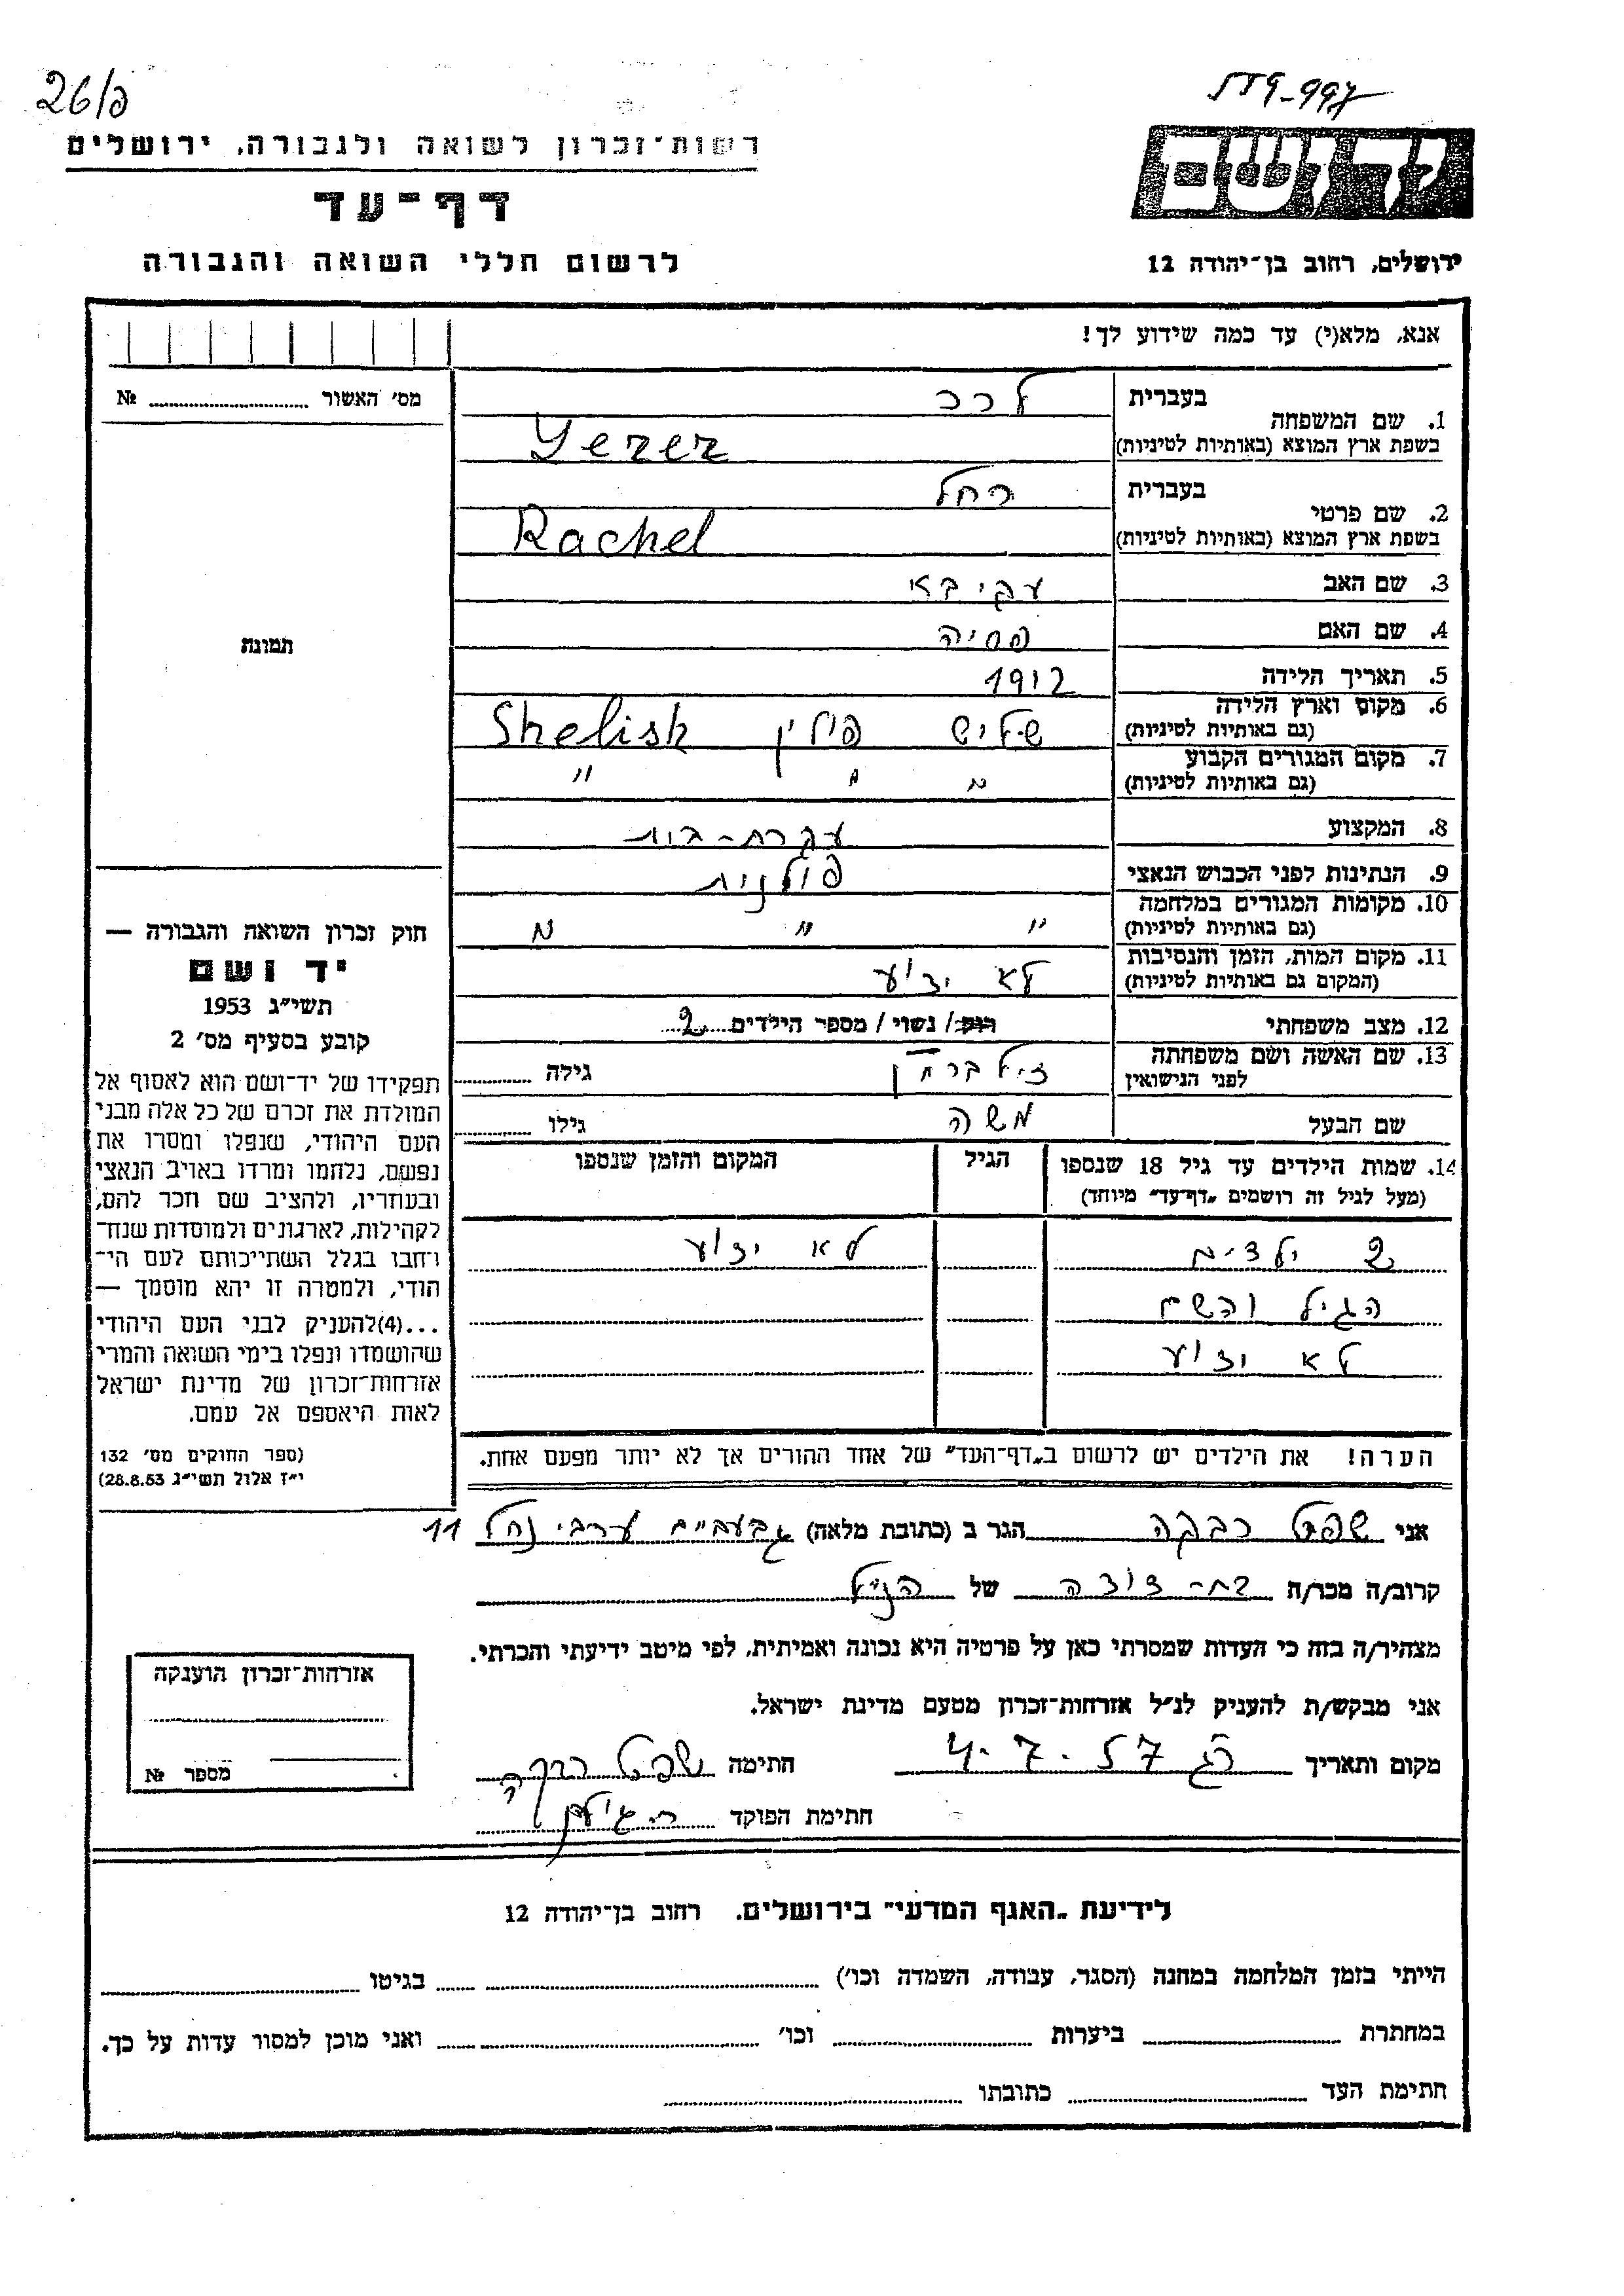 26/פ
רשות־זכרון לשואה ולגבורה, ירושלים
דף־עד
לרשום חללי השואה והגבורה
ידושם
ירושלים, רחוב בן־יהודה 12
אנא, מלא(י) עד כמה שידוע לך!
מס' האשור № 
תמונה
חוק זכרון השואה והגבורה —
יד ושם
תשי״ג 1953
קובע בסעיף מס' 2
תפקידו של יד־ושם הוא לאסוף אל
המולדת את זכרם של כל אלה מבני
העם היהודי, שנפלו ומסרו את
נפשם, נלחמו ומרדו באויב הנאצי
ובעוזריו, ולהציב שם וזכר להם,
לקהילות, לארגונים ולמוסדות שנח־
רחבו בגלל השתייכותם לעם הי־
הודי, ולמטרה זו יהא מוסמך —
...(4)להעניק לבני העם היהודי
שהושמדו ונפלו בימי השואה והמרי
אזרחות־זכרון של מדינת ישראל
לאות היאספם אל עמם.
(ספר החוקים מס' 132
י״ז אלול תשי״ג 28.8.53)
1. שם המשפחה בעברית
בשפת ארץ המוצא (באותיות לטיניות) Yerer
2. שם פרטי בעברית רחל
בשפת ארץ המוצא (באותיות לטיניות) Rachel
3. שם האב עקיבא
4. שם האם
5. תאריך הלידה 1912
6. מקום וארץ הלידה (גם באותיות לטיניות) שליש פולין Shelisk
7. מקום המגורים הקבוע (גם באותיות לטיניות) " " "
8. המקצוע עקרת-בית
9. הנתינות לפני הכבוש הנאצי פולנית
10. מקומות המגורים במלחמה (גם באותיות לטיניות) " " "
11. מקום המות, הזמן והנסיבות (המקום גם באותיות לטיניות) לא ידוע
12. מצב משפחתי רוק/ נשוי/ מספר הילדים 2
13. שם האשה ושם משפחתה לפני הנישואין גילה
שם הבעל משה גילו
14. שמות הילדים עד גיל 18 שנספו (מעל לגיל זה רושמים „דף־עד״ מיוחד) הגיל המקום והזמן שנספו
2 ילדים לא ידוע
הגיל והשם
לא ידוע
הערה! את הילדים יש לרשום ב„דף־העד״ של אחד ההורים אך לא יותר מפעם אחת.
אני שפט רבקה הגר ב (כתובת מלאה) גבעתיים ערבי נחל 11
קרוב/ה מכר/ה בת-דודה של הנ״ל
מצהיר/ה בזה כי העדות שמסרתי כאן על פרטיה היא נכונה ואמיתית, לפי מיטב ידיעתי והכרתי.
אני מבקש/ת להעניק לנ״ל אזרחות־זכרון מטעם מדינת ישראל.
מקום ותאריך 4.7.57 חתימה שפט רבקה
חתימת הפוקד
אזרחות־זכרון הוענקה
מספר №
לידיעת „האגף המדעי״ בירושלים. רחוב בן־יהודה 12
הייתי בזמן המלחמה במחנה (הסגר, עבודה, השמדה וכו') בגיטו
במחתרת ביערות וכו' ואני מוכן למסור עדות על כך.
חתימת העד כתובתו